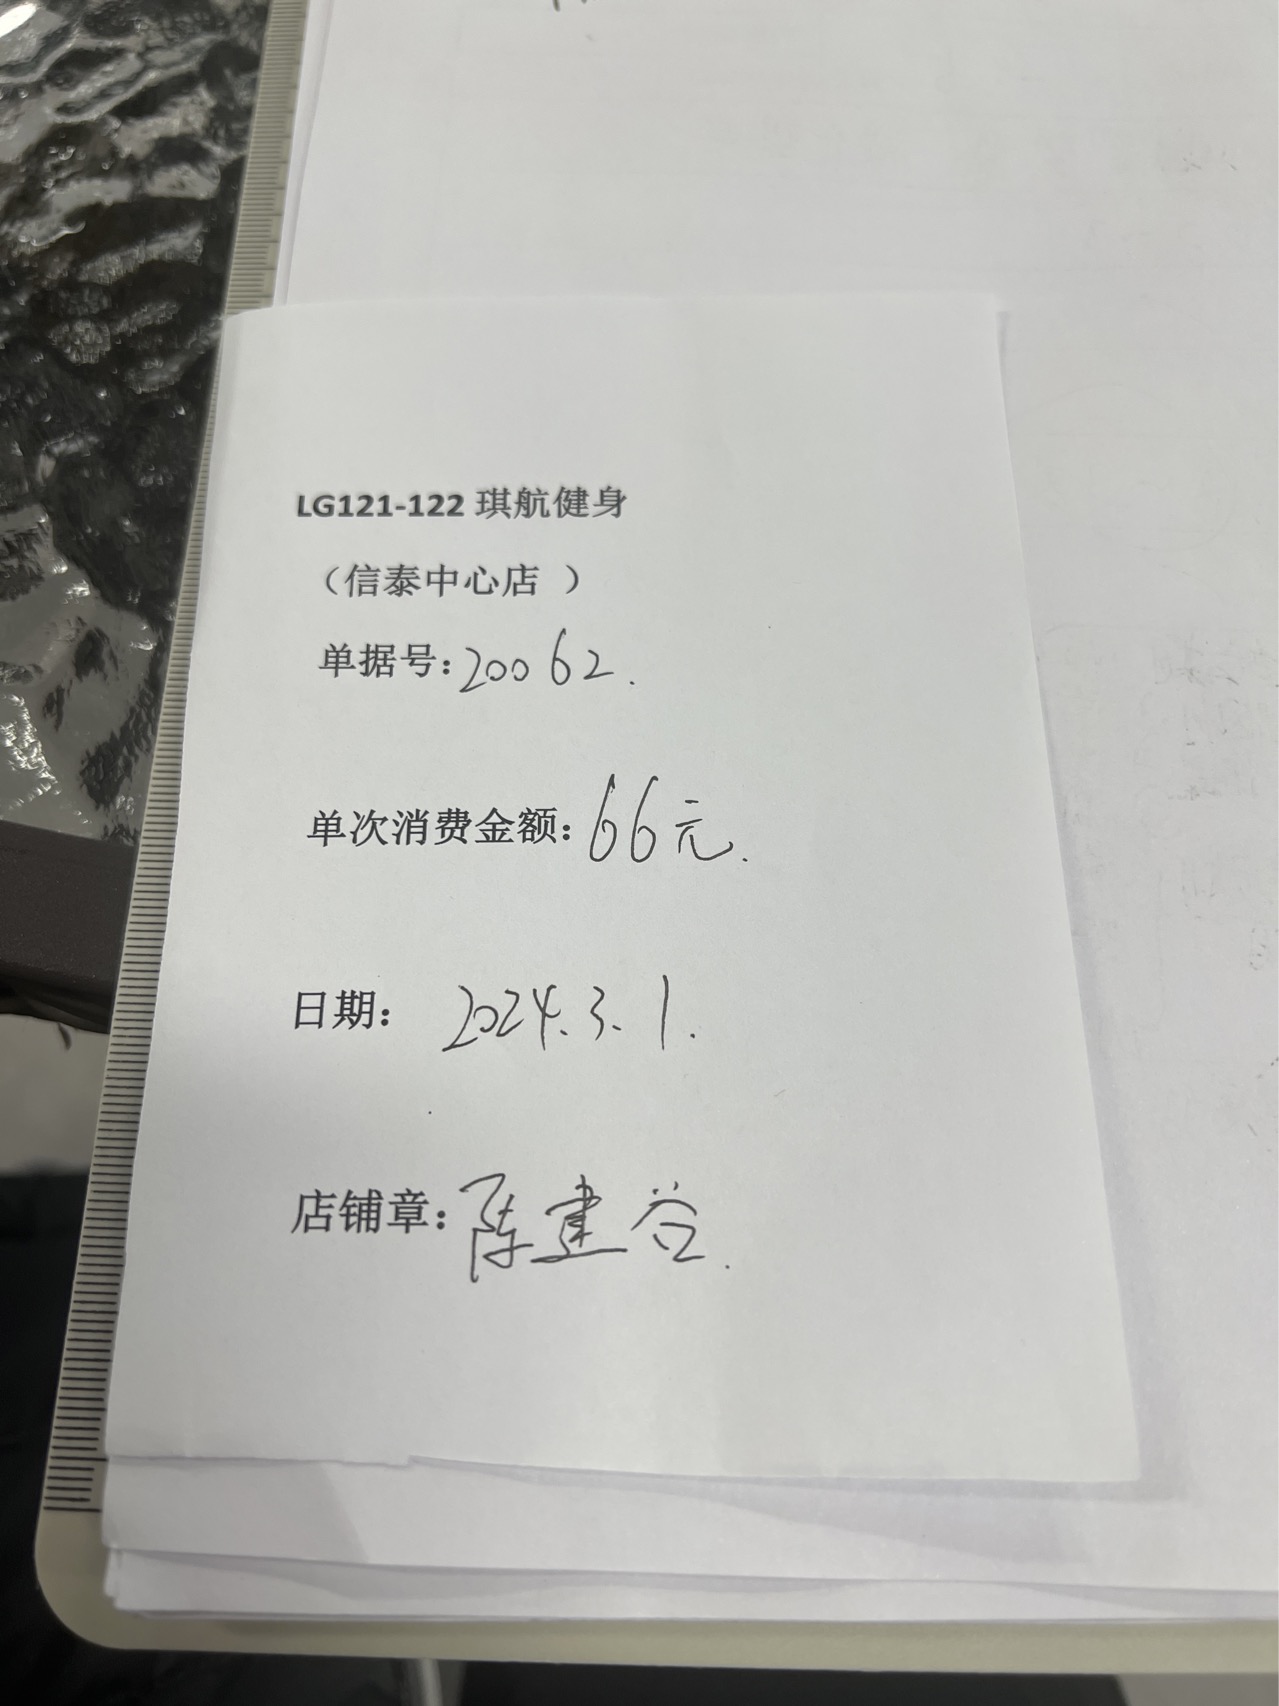 LG121-122 琪航健身
（信泰中心店 ）
单据号：20062.
单次消费金额：66元.
日期： 2024.3.1.
店铺章：陈建谷.